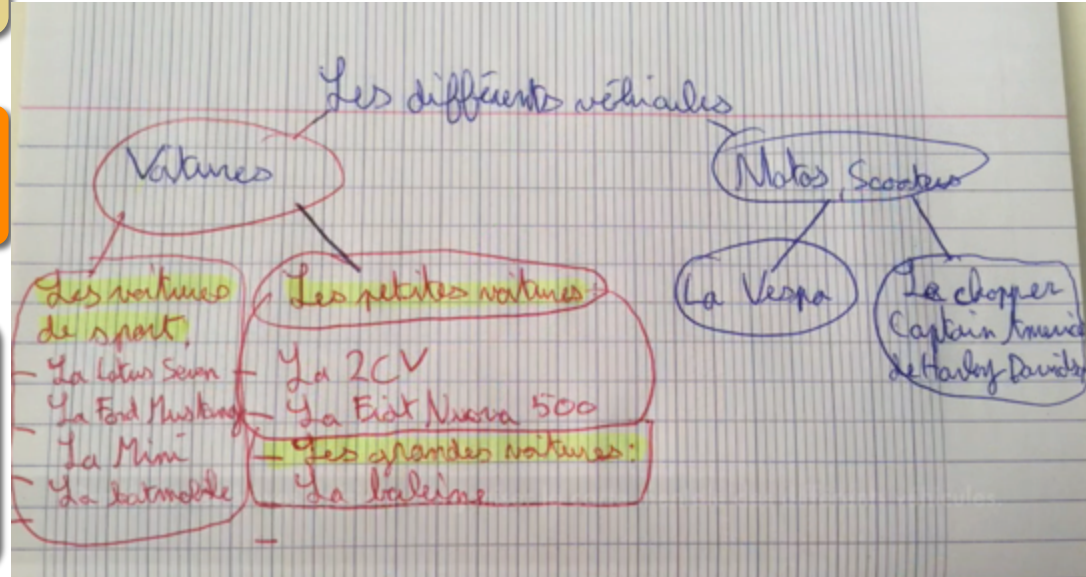 Les différents véhicules
Voitures
Motos, Scooters
Les voitures
de sport.
- La Lotus Seven
- La Ford Mustang
- La Mini
- La batmobile
-
Les petites voitures
- La 2CV
- La Fiat Nuova 500
- Les grandes voitures :
La baleine
-
La Vespa
Le chopper
Captain Americ
de Harley Davids